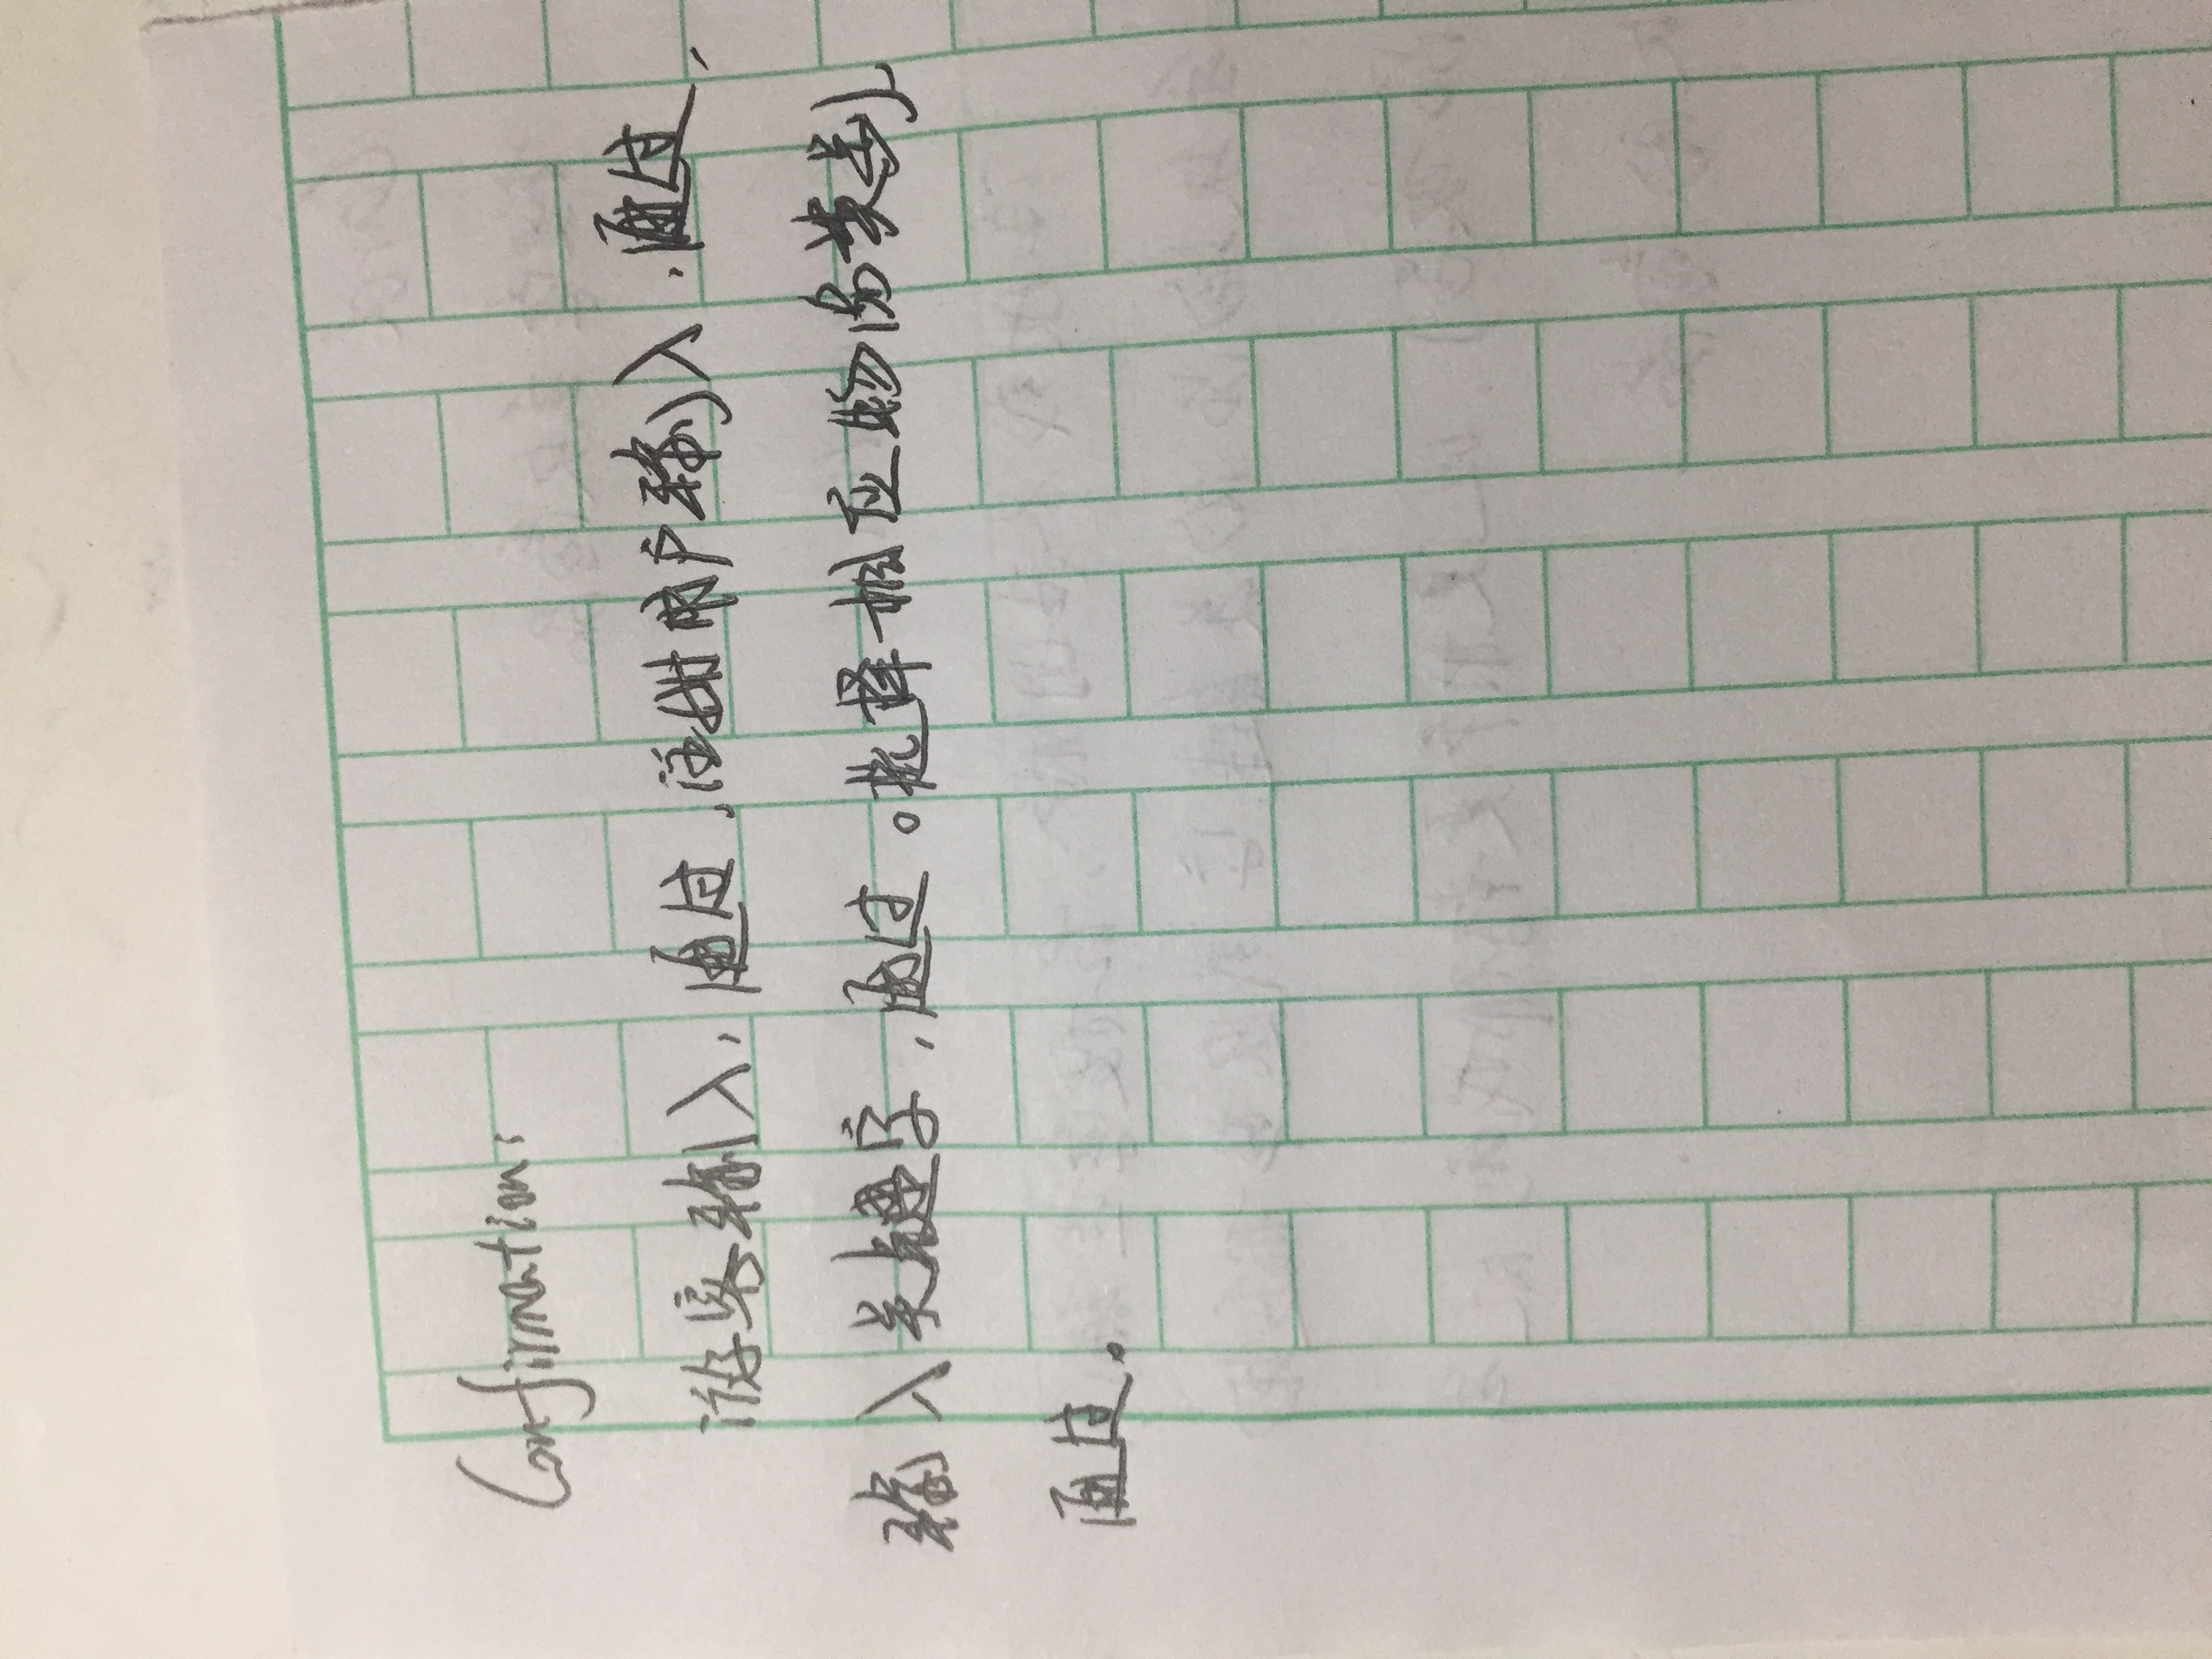 Confirmation:
游客输入，通过，注册用户输入，通过，
输入关键字，通过。选择相应物品类别，
通过。